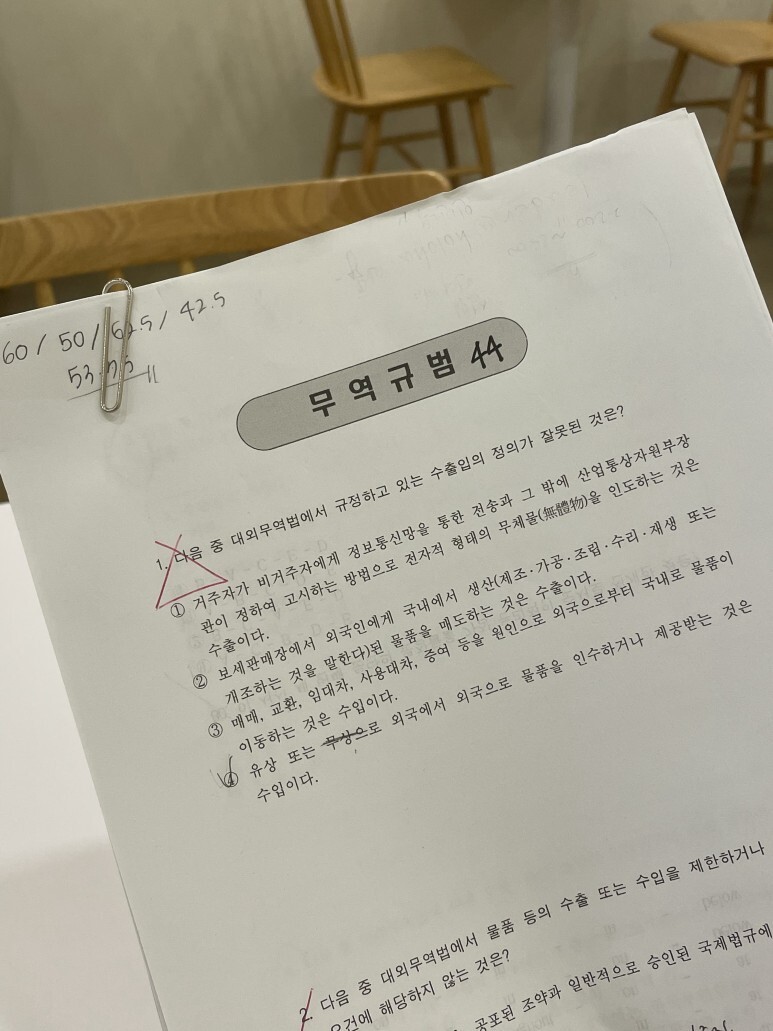 60 / 50 / 62.5 / 42.5
53.75
무역규범 44
1. 다음 중 대외무역법에서 규정하고 있는 수출입의 정의가 잘못된 것은?
① 거주자가 비거주자에게 정보통신망을 통한 전송과 그 밖에 산업통상자원부장
관이 정하여 고시하는 방법으로 전자적 형태의 무체물(無體物)을 인도하는 것은
수출이다.
② 보세판매장에서 외국인에게 국내에서 생산(제조·가공·조립·수리·재생 또는
개조하는 것을 말한다)된 물품을 매도하는 것은 수출이다.
③ 매매, 교환, 임대차, 사용대차, 증여 등을 원인으로 외국으로부터 국내로 물품이
이동하는 것은 수입이다.
④ 유상 또는 무상으로 외국에서 외국으로 물품을 인수하거나 제공받는 것은
수입이다.
2. 다음 중 대외무역법에서 물품 등의 수출 또는 수입을 제한하거나
요건에 해당하지 않는 것은?
공포된 조약과 일반적으로 승인된 국제법규에